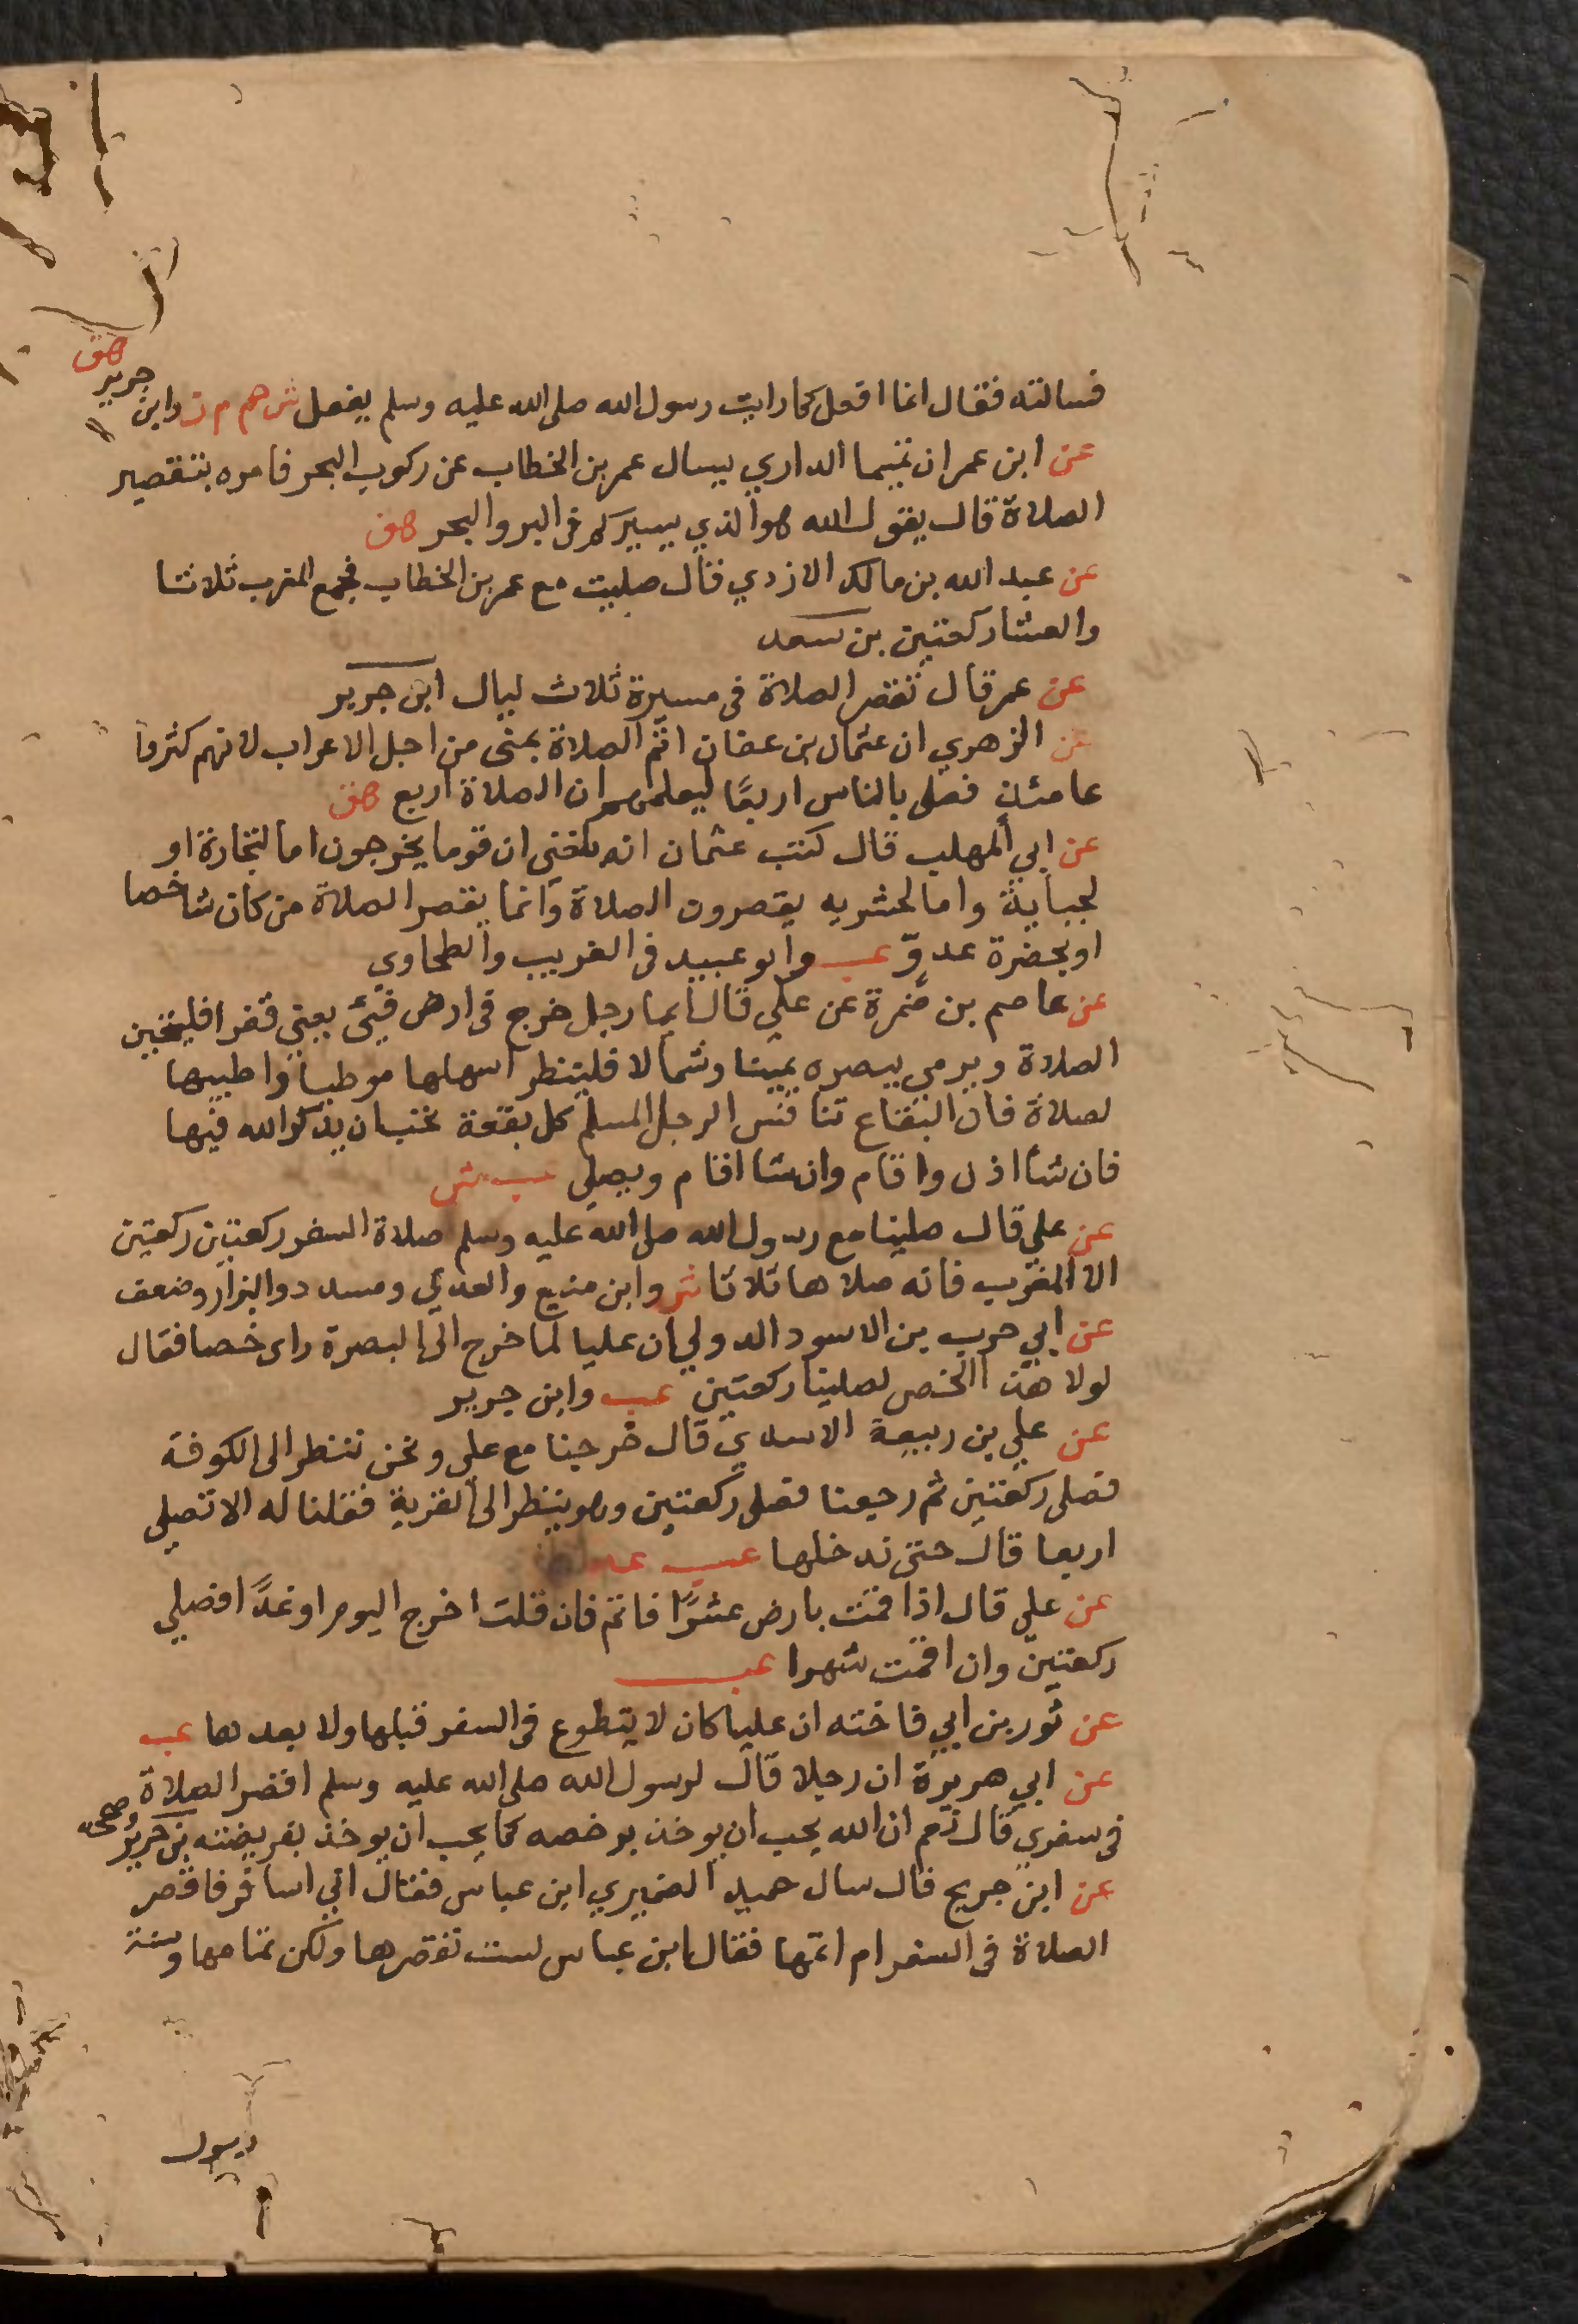 فسالته فقال انما افعل كما رايت رسول الله صلى الله عليه وسلم يفعل ش هم م ن وابن جرير هق
عن ابن عمر ان تميما الداري يسال عمر بن الخطاب عن ركوب البحر فامره بتقصير
الصلاة قال يقول الله هو الذي يسيركم في البر والبحر هق
عن عبد الله بن مالك الازدي قال صليت مع عمر بن الخطاب فجمع المغرب ثلاثا
والعشا ركعتين بن سعد
عن عمر قال تقصر الصلاة في مسيرة ثلاث ليال ابن جرير
عن الزهري ان عثمان بن عفان اتم الصلاة بمنى من اجل الاعراب لانهم كثروا
عامئذ فصلى بالناس اربعًا ليعلمهم ان الصلاة اربع هق
عن ابي المهلب قال كتب عثمان انه بلغني ان قوما يخرجون اما لتجارة او
لجباية واما لحشريه يقصرون الصلاة وانما يقصر الصلاة من كان شاخصا
او بحضرة عدوّ عب وابو عبيد في الغريب والطحاوي
عن عاصم بن ضمرة عن علي قال ايما رجل خرج في ارض قيّ يعني قفر افليتحين
الصلاة ويرمي ببصره يمينا وشمالا فلينظر اسهلها موطيا واطيبها
لصلاة فان البقاع تنافس الرجل المسلم كل بقعة تحب ان يذكر الله فيها
فان شا اذن واقام وان شا اقام ويصلي عب ش
عن علي قال صلينا مع رسول الله صلى الله عليه وسلم صلاة السفر ركعتين ركعتين
الا المغرب فانه صلاها ثلاثا ش وابن منيع والعدني ومسدد والبزار وضعف
عن ابي حرب بن الاسود الدولي ان عليا لما خرج الى البصرة راى خصا فقال
لولا هذا الخص لصلينا ركعتين عب وابن جرير
عن علي بن ربيعة الاسدي قال خرجنا مع علي ونحن ننظر الى الكوفة
فصلى ركعتين ثم رجعنا فصلى ركعتين وهو ينظر الى القرية فقلنا له الا تصلي
اربعا قال حتى ندخلها عب
عن علي قال اذا قمت بارض عشرًا فاتم فان قلت اخرج اليوم او غدًا افصلي
ركعتين وان اقمت شهرا عب
عن ثور بن ابي فاخته ان عليا كان لا يتطوع في السفر قبلها ولا بعدها عب
عن ابي هريرة ان رجلا قال لرسول الله صلى الله عليه وسلم اقصر الصلاة
في سفري قال نعم ان الله يحب ان يوخذ برخصه كما يحب ان يوخذ بفريضته بن جرير وصححه
عن ابن جريج قال سال حميد الضميري ابن عباس فقال اني اسافر فاقصر
الصلاة في السفر ام اتمها فقال ابن عباس لست تقصرها ولكن تمامها وسنة
رسول